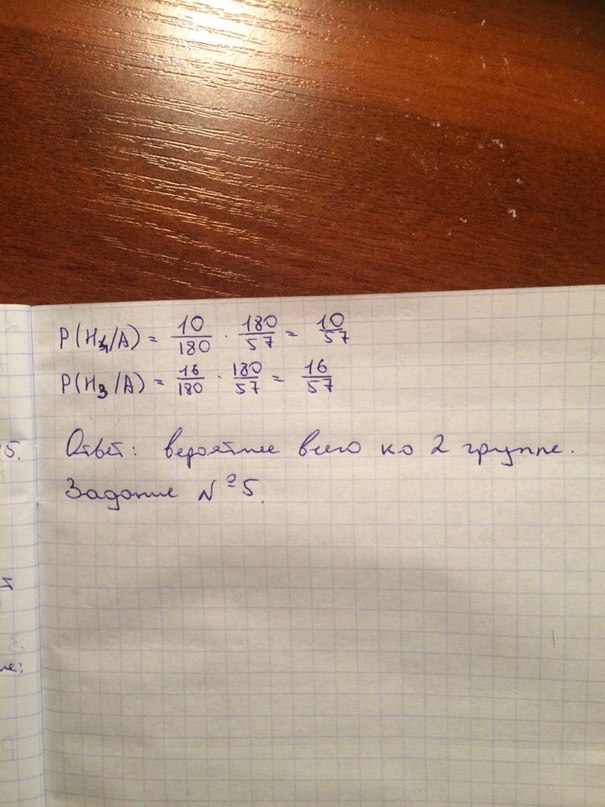 P(H₄/A) = 10/180 · 180/57 = 10/57
P(H₃/A) = 16/180 · 180/57 = 16/57
5. Ответ: вероятнее всего ко 2 группе.
Задание №5.